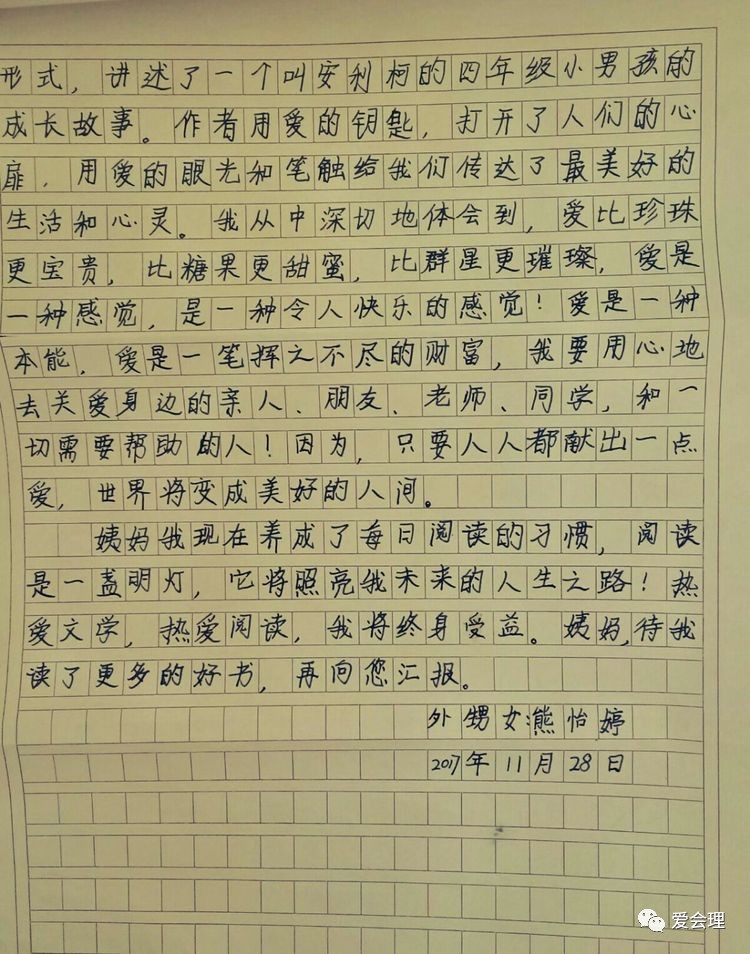 形式，讲述了一个叫安利柯的四年级小男孩的
成长故事。作者用爱的钥匙，打开了人们的心
扉，用爱的眼光和笔触给我们传达了最美好的
生活和心灵。我从中深切地体会到，爱比珍珠
更宝贵，比糖果更甜蜜，比群星更璀璨，爱是
一种感觉，是一种令人快乐的感觉！爱是一种
本能，爱是一笔挥之不尽的财富，我要用心地
去关爱身边的亲人、朋友、老师、同学，和一
切需要帮助的人！因为，只要人人都献出一点
爱，世界将变成美好的人间。
姨妈我现在养成了每日阅读的习惯，阅读
是一盏明灯，它将照亮我未来的人生之路！热
爱文学，热爱阅读，我将终身受益。姨妈，待我
读了更多的好书，再向您汇报。
外甥女：熊怡婷
2017年11月28日
爱会理